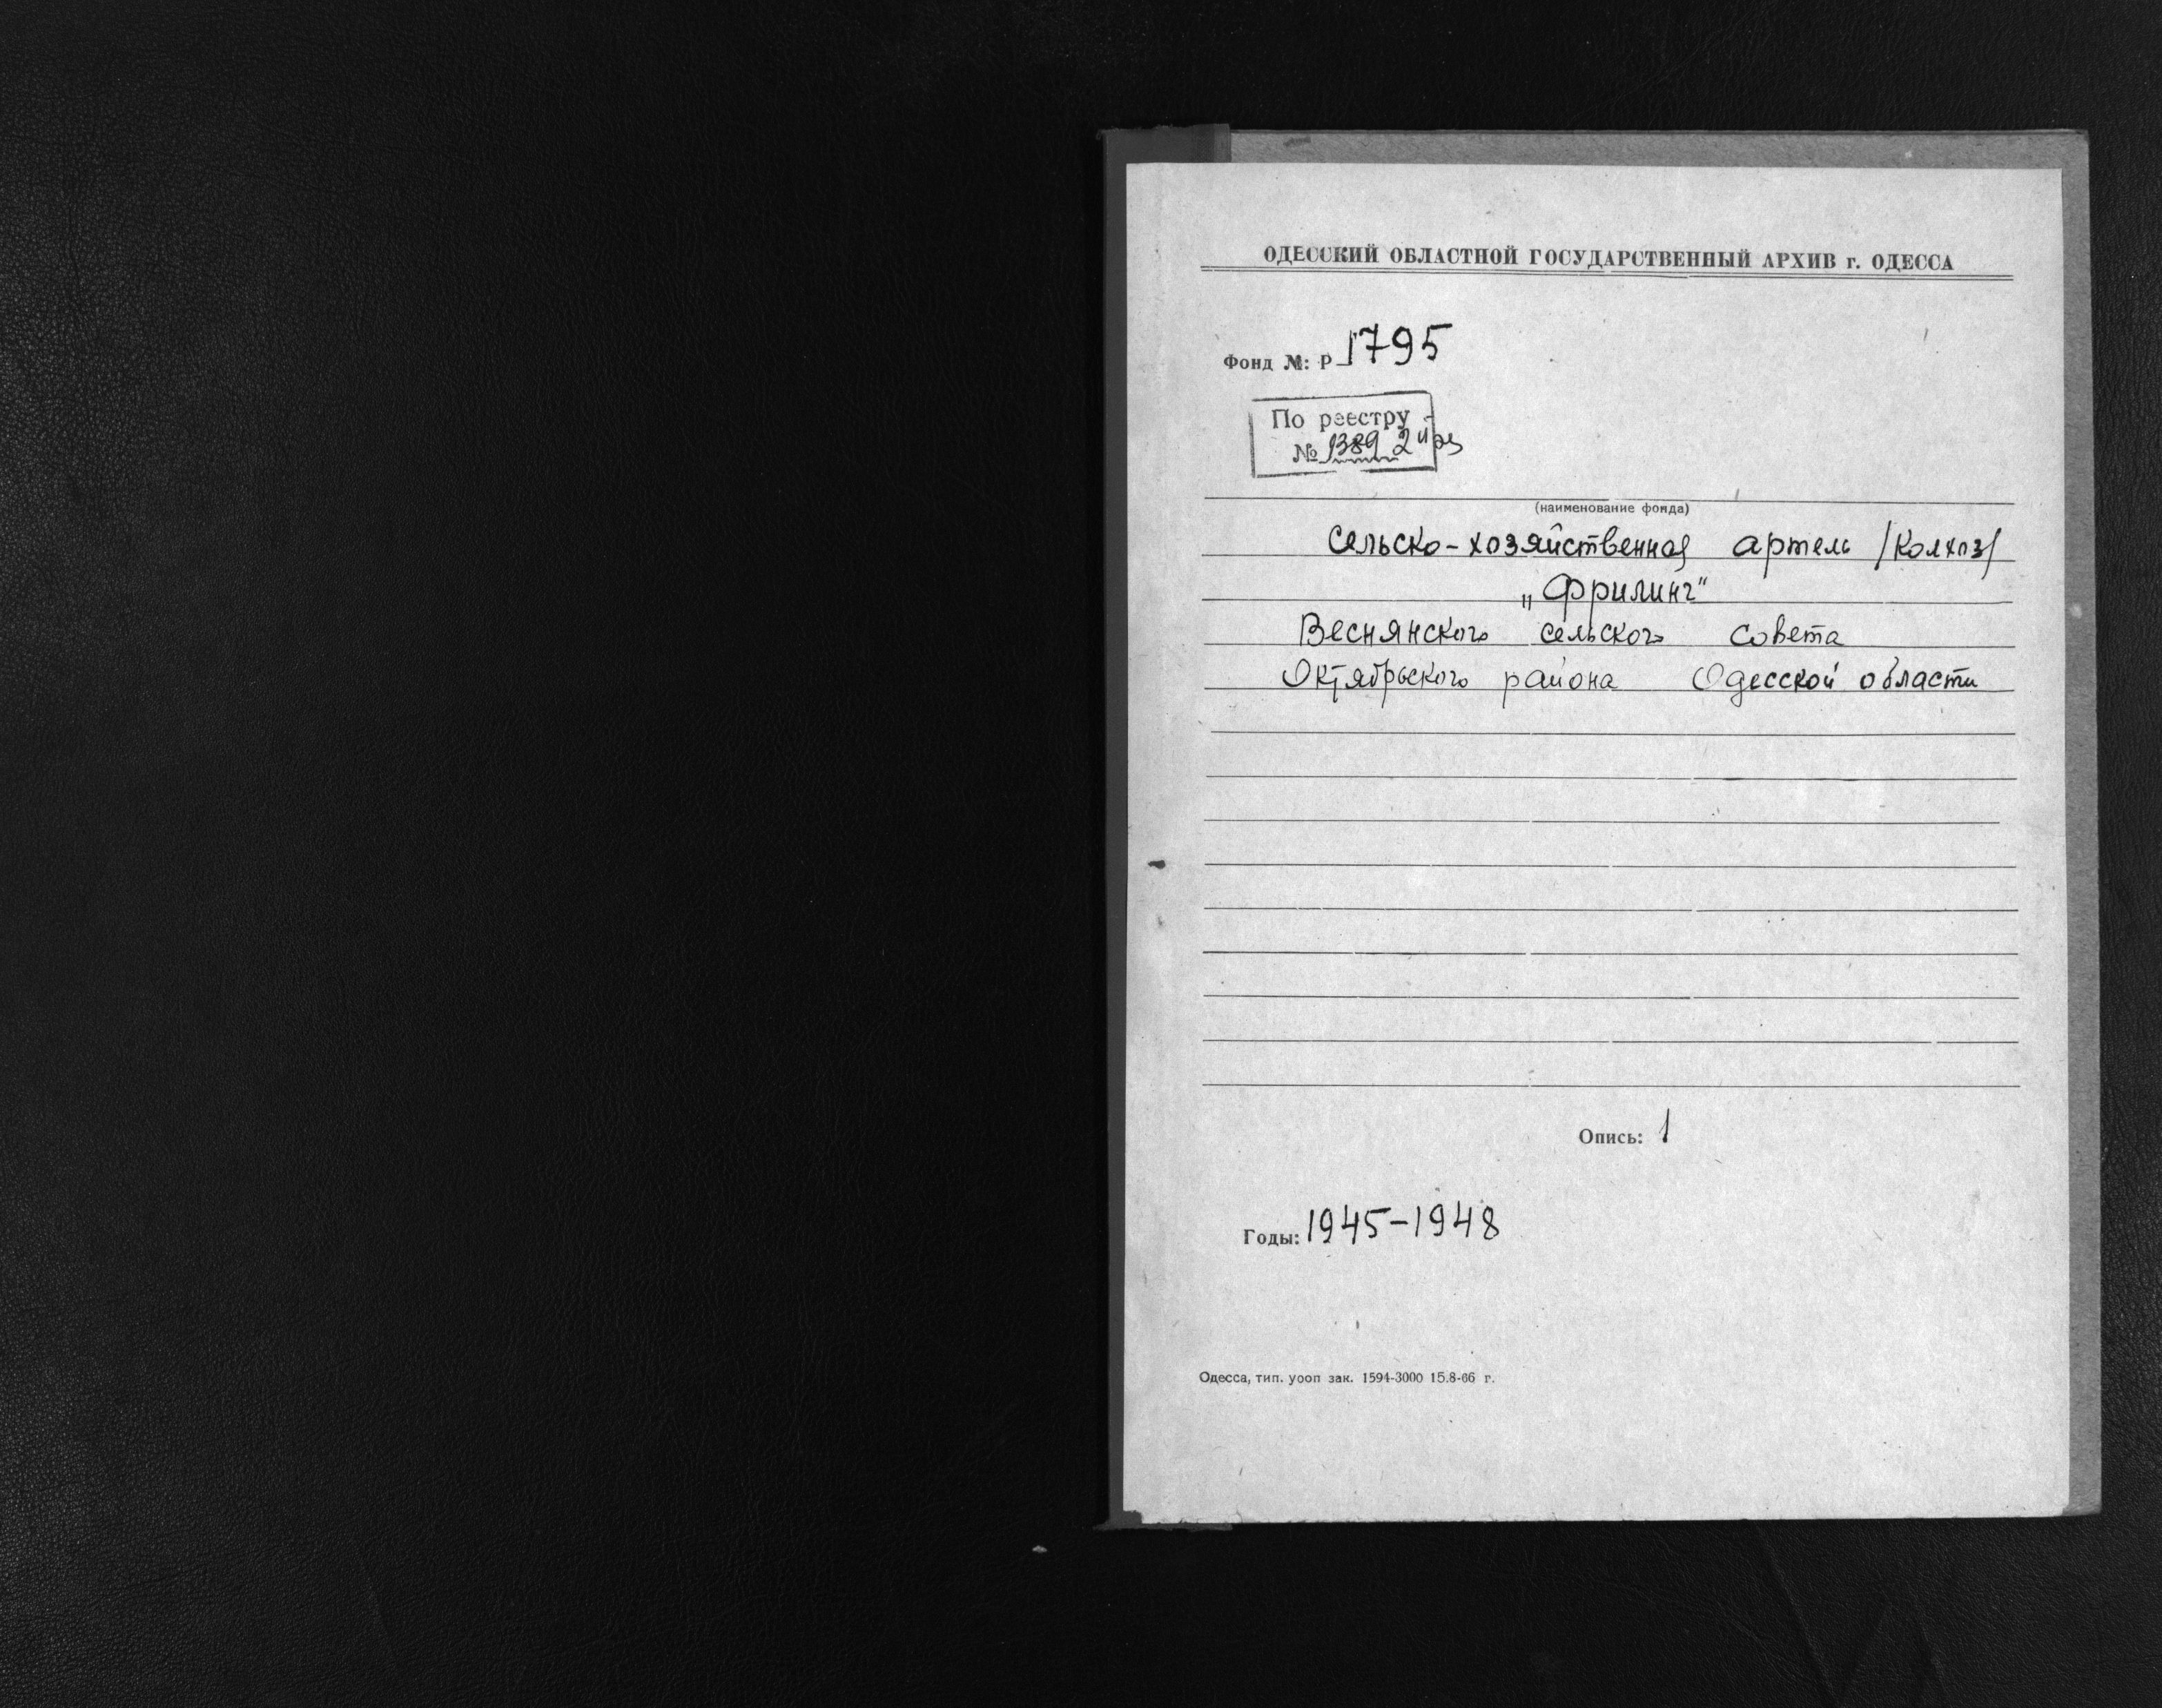 ОДЕССКИЙ ОБЛАСТНОЙ ГОСУДАРСТВЕННЫЙ АРХИВ г. ОДЕССА
Фонд №: Р 1795
По реестру
№ 1389 2
(наименование фонда)
Сельско-хозяйственная артель /Колхоз/
„Фрилинг"
Веснянского сельского совета
Октябрьского района Одесской области
Опись: 1
Годы: 1945-1948
Одесса, тип. уооп зак. 1594-3000 15.8-66 г.